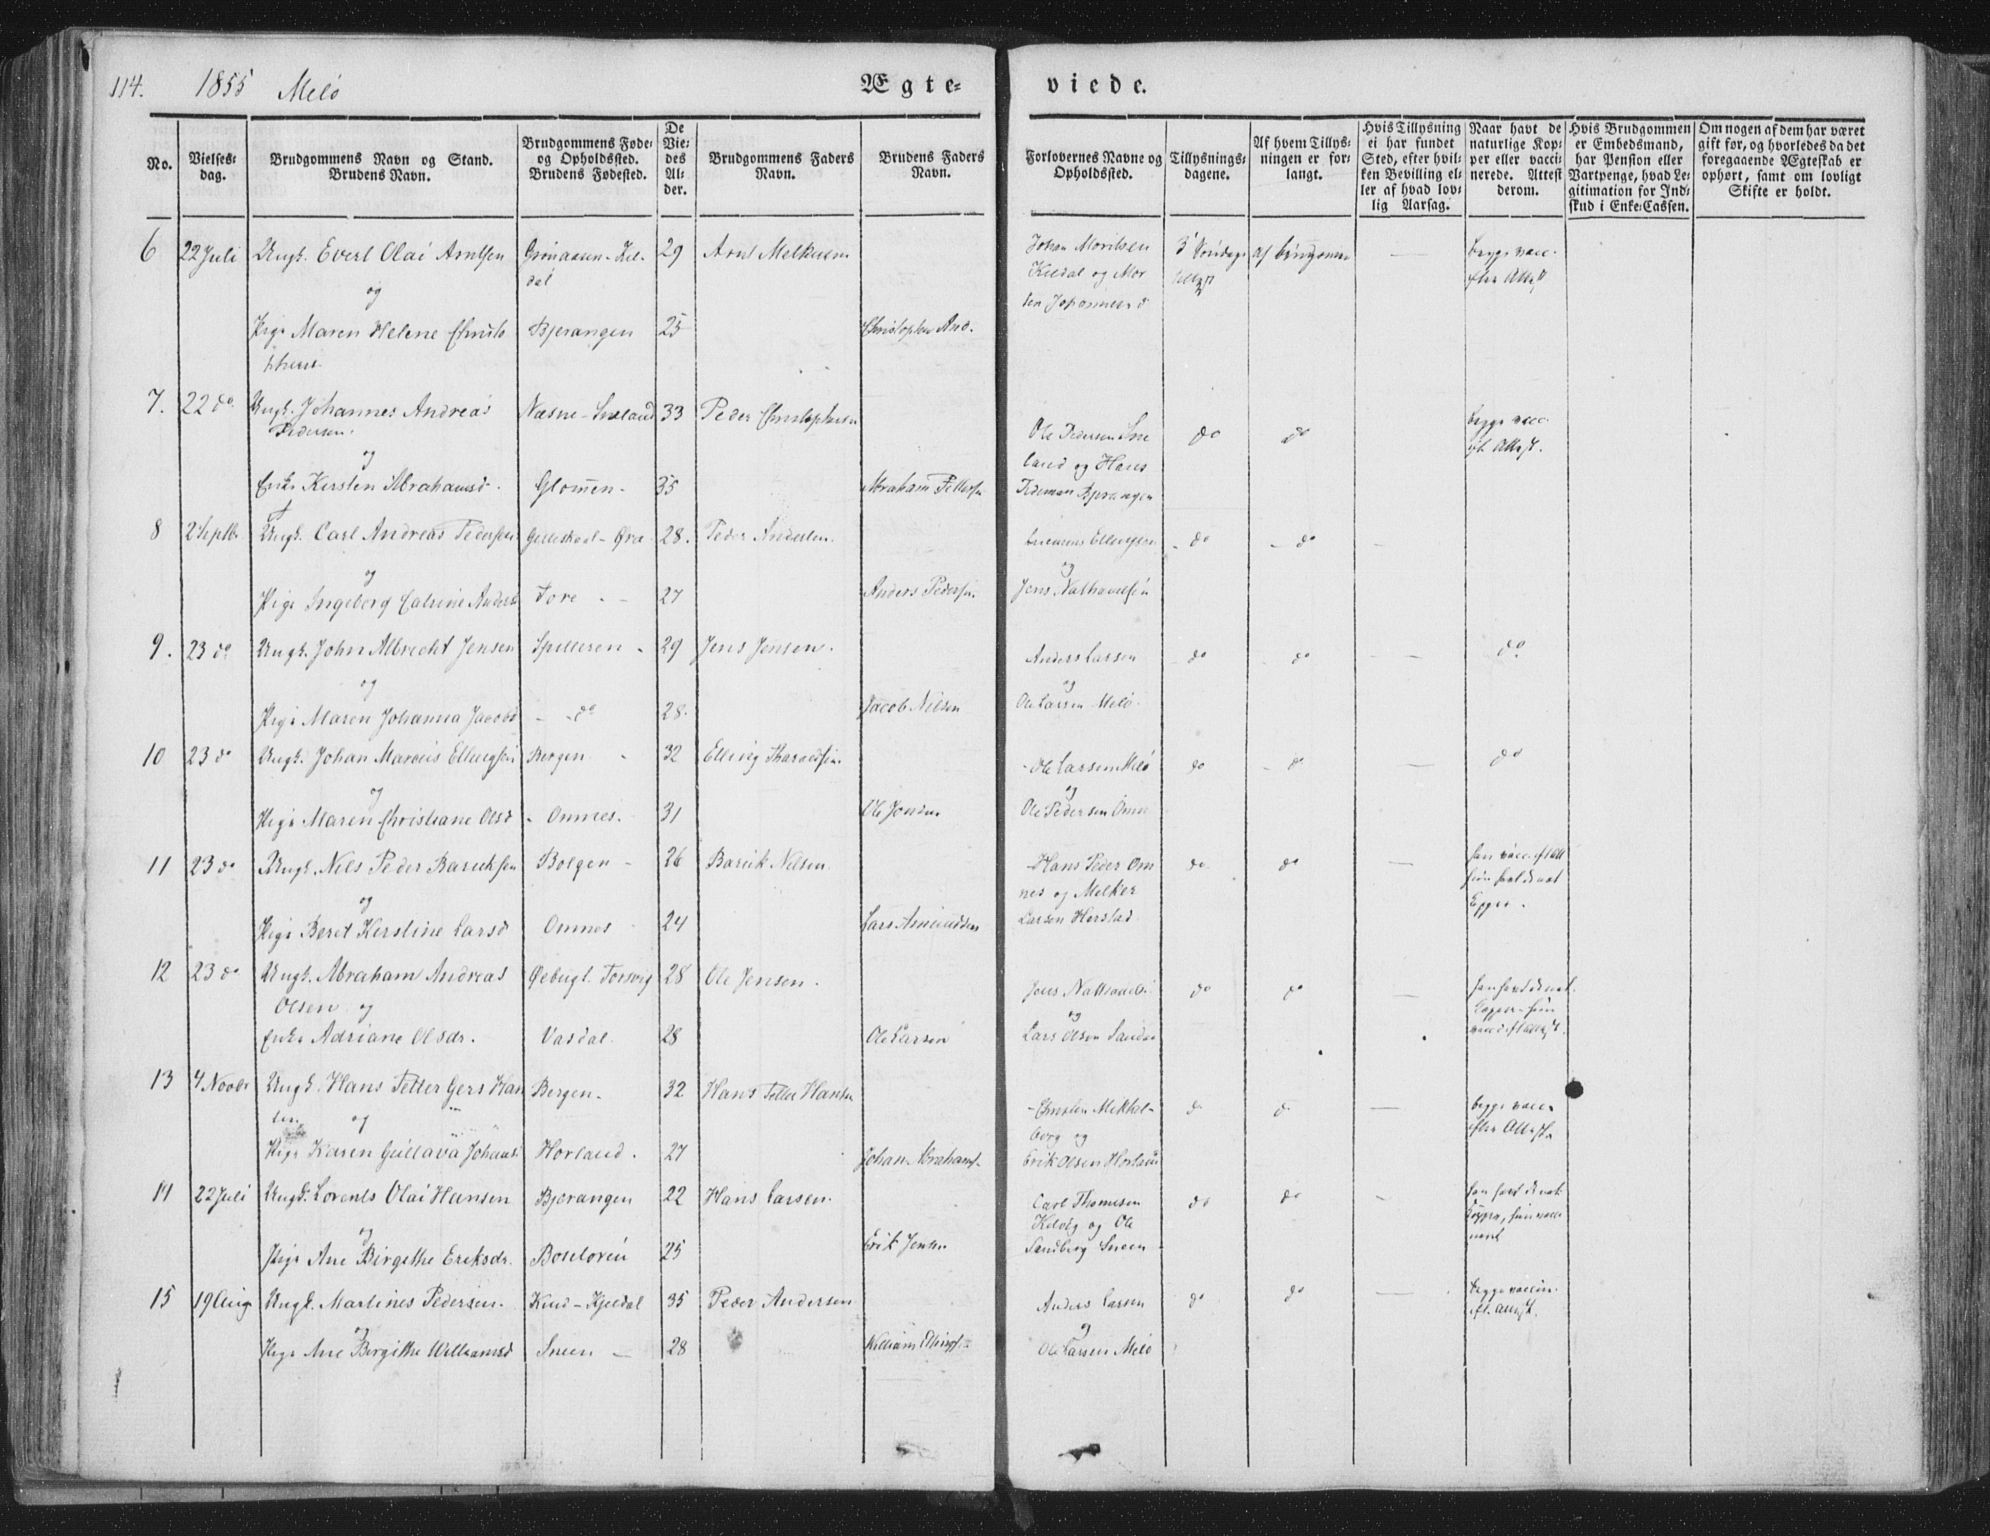 114. 1855 Melö Ægte- viede.
No.
Vielses-
dag.
Brudgommens Navn og Stand.
Brudens Navn.
Brudgommens Føde-
og Opholdssted.
Brudens Fødested.
De
Vie-
des
Al-
der.
Brudgommens Faders
Navn.
Brudens Faders
Navn.
Forlovernes Navne og
Opholdssted.
Tillysnings-
dagene.
Af hvem Tillys-
ningen er for-
langt.
Hvis Tillysning
ei har fundet
Sted, efter hvil-
ken Bevilling el-
ler af hvad lov-
lig Aarsag.
Naar havt de
naturlige Kop-
per eller vacci-
nerede. Attest
derom.
Hvis Brudgommen
er Embedsmand,
har Pension eller
Vartpenge, hvad Le-
gitimation for Ind-
skud i Enke-Cassen.
Om nogen af dem har været
gift før, og hvorledes da det
foregaaende Ægteskab er
ophørt, samt om lovligt
Skifte er holdt.
6 22 Juli Ungk. Evert Olai Arntsen 29 Arnt
og
Pige Maren Helene Christo Bjerangen 25 Christopher And.
Johan
Kildal og Mor
ten Johannes
3 Søndage
af brudgommen
begge vacc.
efter Attest
7. 22 do Ungk. Johannes Andreas Næsne - 33 Peder Christophersen
Pedersen.
og
Enke Kirsten Abrahamsd. Glomen - 35 Abraham
Ole Pedersen Sne
land og Hans
Tideman Bjerangen
do do
begge vacc.
eft. Attest.
8 2 Septbr Ungk. Carl Andreas Pedersen 28. Peder Andersen
og
Pige Ingeborg Catrine Tore - 27 Anders Pedersen
og
Jens
- do - do -
9. 23 do Ungk. John Albrecht Jensen Spilderen - 29 Jens Jensen.
og
Pige Maren Johanna Jacobsd - do 28. Jacob Nilsen
Anders Larsen
og
Ole Larsen Melö.
do do - do
10 23 do Ungk. Johan Marcus Ellingsen Bergen - 32 Elling
og
Pige Maren Christiane Olsd - Omnes. 31 Ole
- Ole Larsen Melö
og
Ole Pedersen Omn
do - do - do
11 23 do Ungk. Nils Peder Baruksen Bolgen - 26 Baruk Nilsen
og
Pige Beret Kirstine Larsd Omnes 24 Lars
- Hans Peder Om
nes og Melker
Larsen Herstad
do do -
han vacc. eft Att
hun havt de nat
Copper.
12 23 do Ungk. Abraham Andreas 28 Ole Jensen.
Olsen og
Enke Adriane Olsdr. Vasdal. 28 Ole Larsen
Jens
og
Lars Olsen
do do -
han havt de nat.
Copper - hun
vacc eft Attest.
13 4 Novbr Ungk. Hans Petter Gers Han Bergen - 32 Hans Petter Hansen
sen og
Pige Karen Gustava Horland. 27 Johan Abrahams.
- Christen
borg og
Erik Olsen
do do -
begge vacc.
efter Attest
14 22 Juli Ungk. Lorents Olai Hansen Bjerangen 22 Hans Larsen.
og
Pige Ane Birgithe Eriksdr. 25 Erik Jensen
Carl Thomesen
Kilvig og Ole
Sandberg Sneen
do do -
han havt de nat.
Copper, hun vacci
neret
15 19 Aug Ungk. Martines Pedersen. 35 Peder Andersen
og
Pige Ane Birgithe Williamsd Sneen - 28 William
Anders Larsen
og
Ole Larsen Melö
do do -
begge vaccin.
eft. Attest.